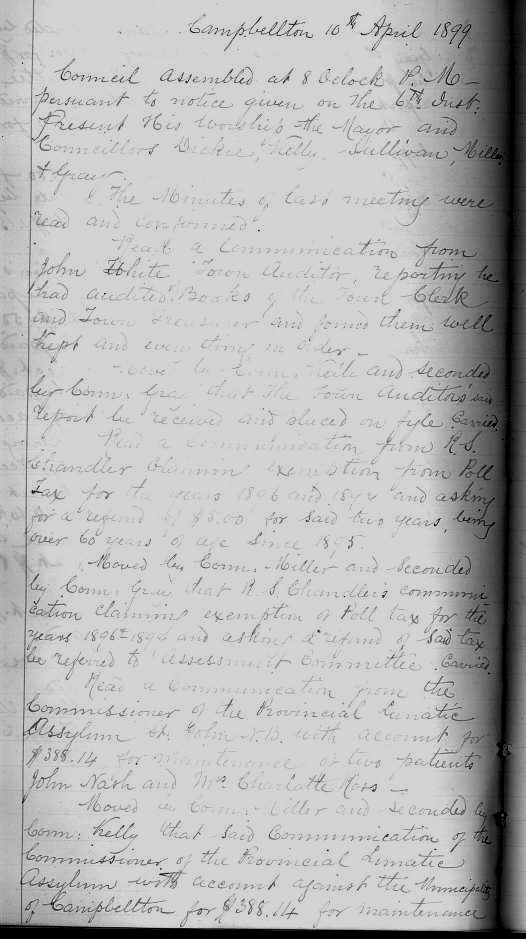 Campbellton 10th April 1899
Council Assembled at 8 Oclock P. M -
persuant to notice given on the 6th Inst.
Present His Worship the Mayor and
Councillors Dickie, Kelly Sullivan, Miller
& Gray.
The Minutes of last meeting were
read and confirmed.
Read a Communication from
John White Town Auditor, reporting he
had audited Books of the Town Clerk
and Town Treasurer and found them well
kept and every thing in Order -
Moved by Conn. and seconded
by Conn. Gray that the Town Auditors said
report be received and placed on fyle. Carried.
Read a communication from R. S.
Chandler Claiming exemption from Poll
Tax for the years 1896 and and asking
for a refund of $5.00 for said two years, being
over 60 years of age since 1895.
Moved by Conn. Miller and seconded
by Conn. Gray that R. S. Chandlers communi
cation claiming exemption of Poll tax for the
years 1896 and asking a refund of said tax
be referred to Assessment Committee. Carried.
Read a Communication from the
Commissioner of the Provincial Lunatic
Assylum St. John N.B. with account for
$388.14 for maintenance of two patients
John Nash and Mrs Charlotte Ross -
Moved by Conn. Miller and seconded by
Conn: Kelly that said Communication of the
Commissioner of the Provincial Lunatic
Assylum with account against the Municipality
of Campbellton for $388.14 for maintenance